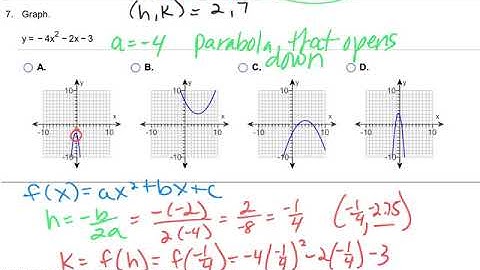 (h,k) = 2,7
7. Graph.
y = – 4x² – 2x – 3
a = -4 parabola, that opens down
A. B. C. D.
10 y x -10 10 -10
10 y x -10 10 -10
10 y x -10 10 -10
10 y x -10 10 -10
f(x) = ax² + bx + c
h = -b/2a = -(-2)/2(-4) = 2/-8 = -1/4 (-1/4, -2.75)
K = f(h) = f(-1/4) = -4(-1/4)² - 2(-1/4) - 3